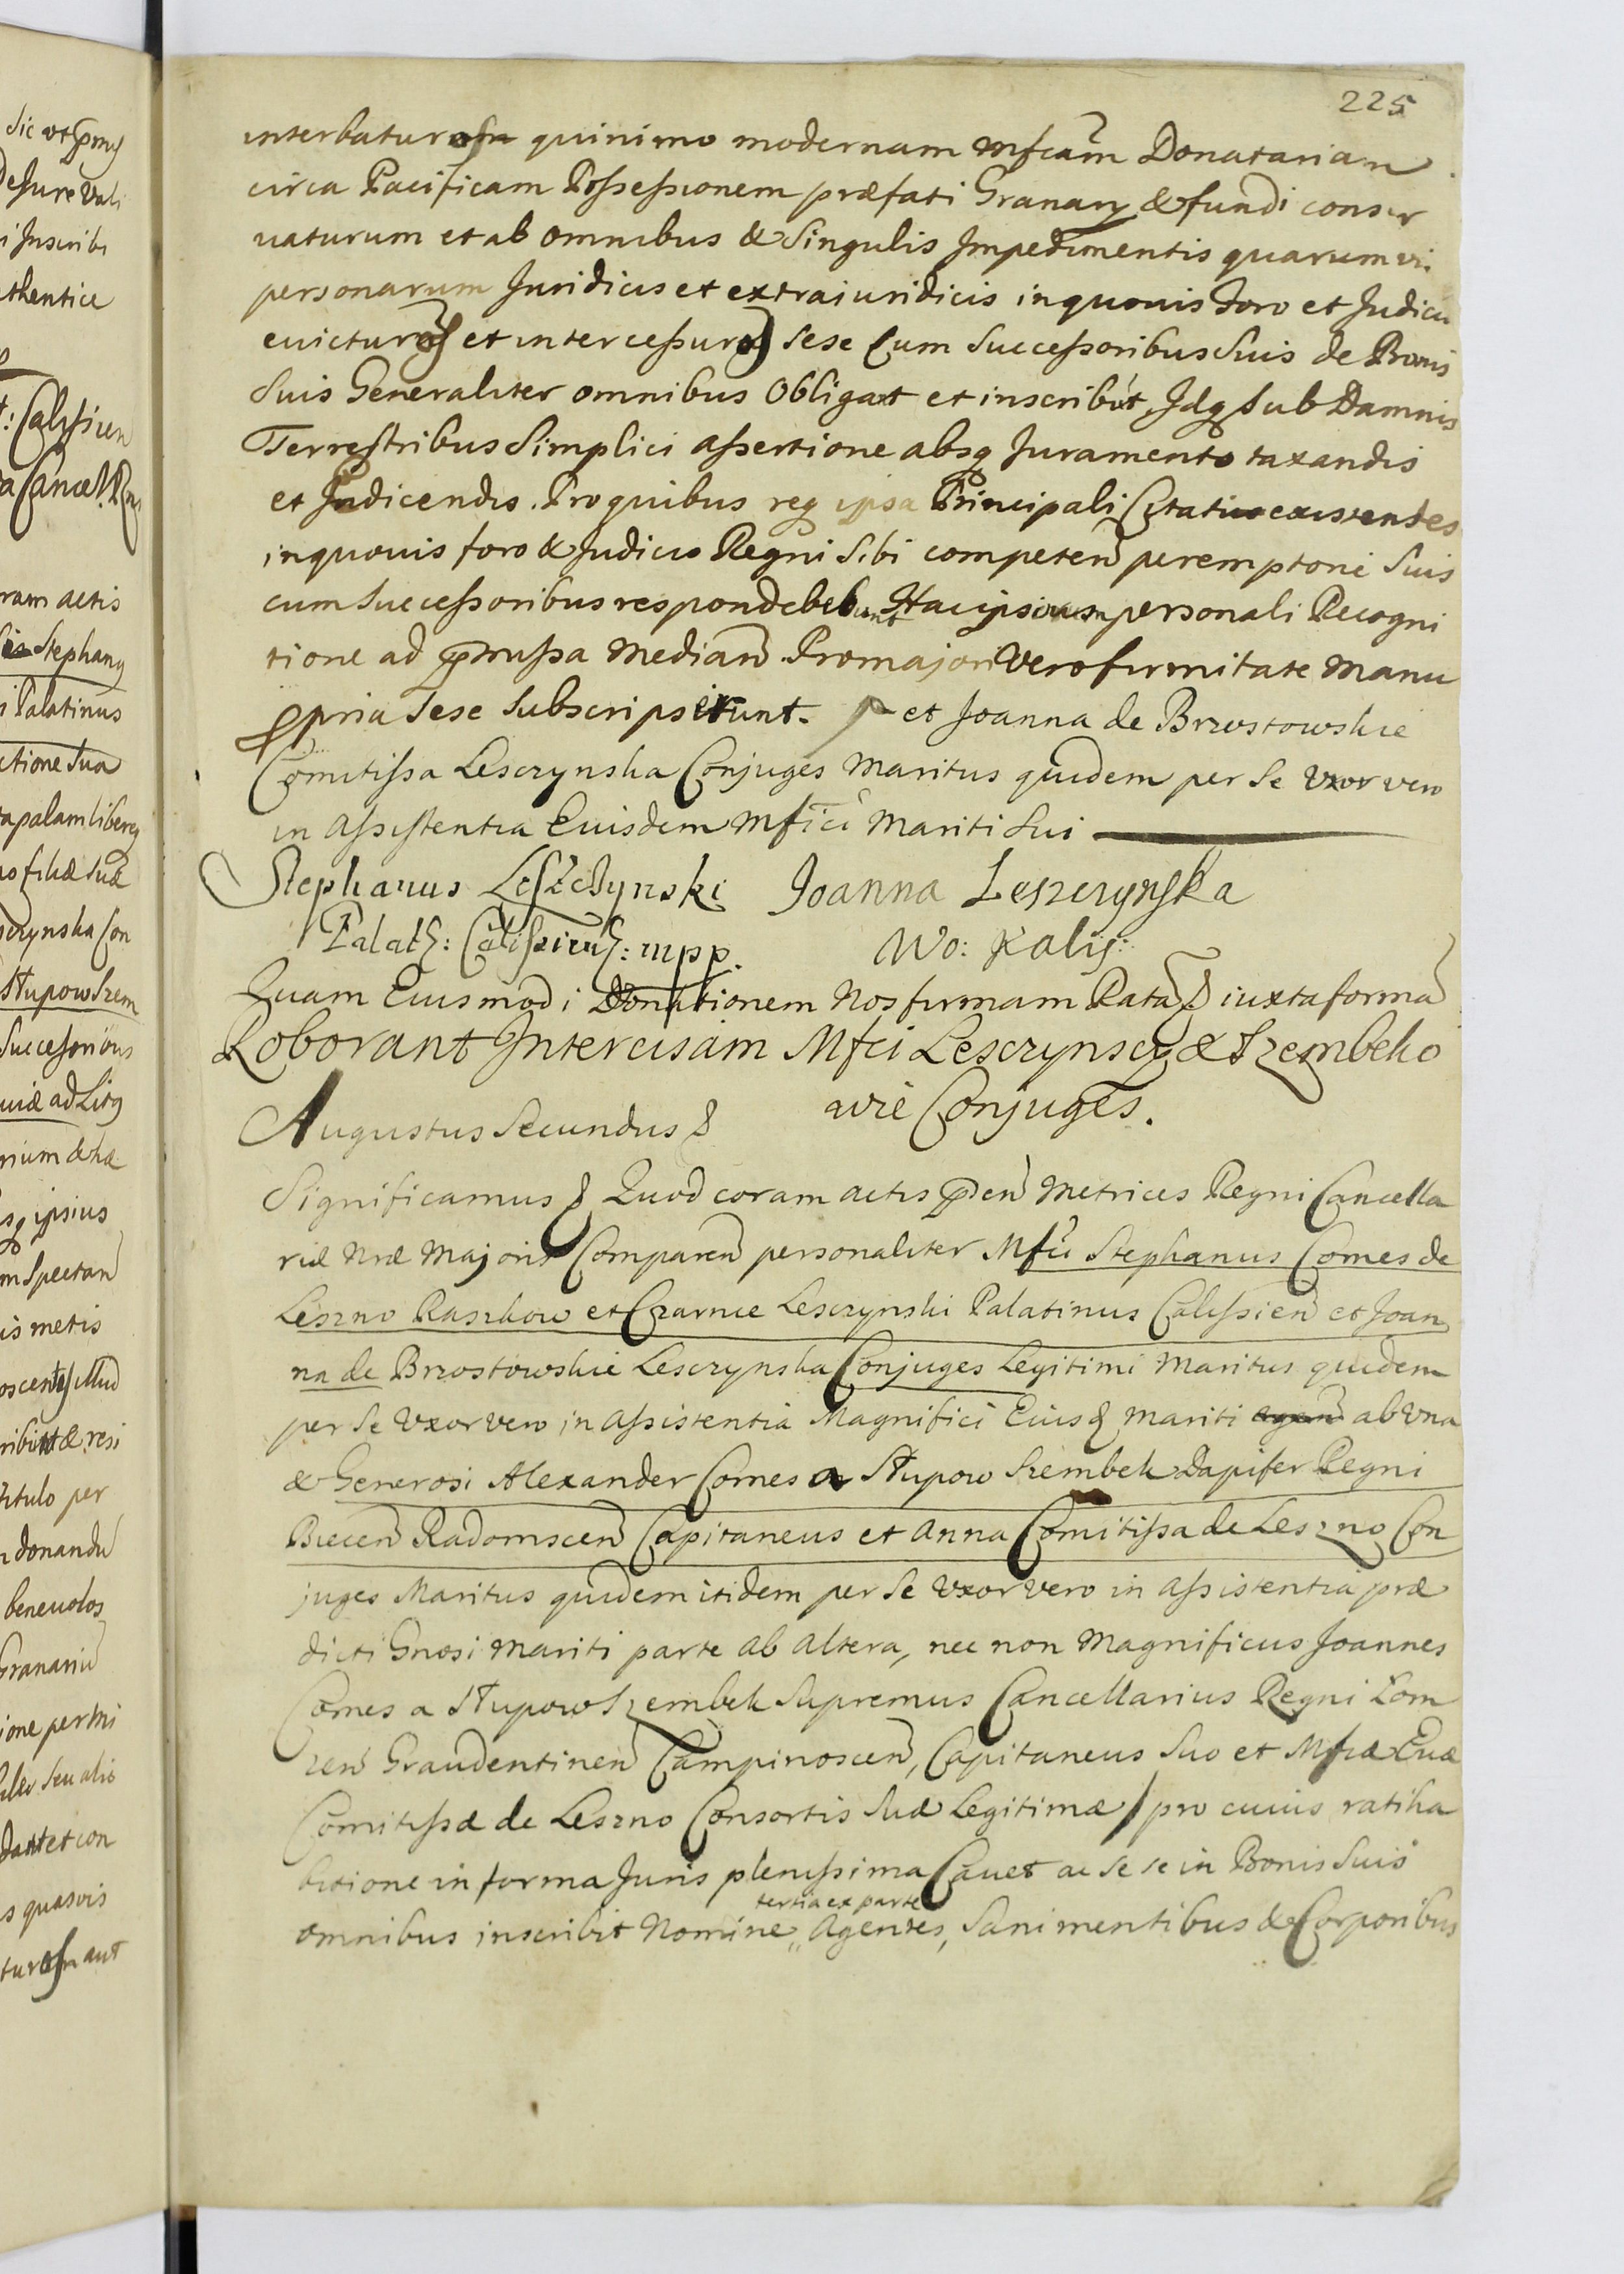 225
interbaturos quinimo modernam Mfcam Donatariam
circa Pacificam Possessionem præfati Granarÿ & fundi conser
uaturum et ab omnibus & Singulis Impedimentis quarumvis
personarum Juridicis et extraiuridicis in quouis Foro et Judicio
euicturos et intercessuros sese Cum Successoribus Suis de Bonis
Suis Generaliter omnibus Obligant et inscribunt, Idq Sub Damnis
Terrestribus Simplici assertione absq Juramento taxandis
et Judicendis. Pro quibus req ipsa Principali Citati existentes
in quouis foro & Judicio Regni Sibi competen peremptorie Suis
cum Successoribus respondebunt Hac ipsorum personali Recogni
tione ad præmissa median Pro majori Vero firmitate Manu
propria Sese Subscripserunt. et Joanna de Brzostowskie
Comitissa Lesczynska Conjuges Maritus quidem per Se Vxor vero
in Assistentia Euisdem Mfici Mariti Sui
Stephanus Leszczynski Joanna Leszczynska
Palat: Calissien: mpp. Wo: Kalis:
Quam Eiusmodi Donationem Nos firmam Ratam & iuxta forma
Roborant Intercisam Mfci Lesczynscy & Szembeko
wie Conjuges.
Augustus Secundus &
Significamus & Quod coram actis præsen Metrices Regni Cancella
riæ Nræ Majoris Comparen personaliter Mfci Stephanus Comes de
Leszno Raszkow et Czarnie Lesczynski Palatinus Calissien et Joan
na de Brzostowskie Lesczynska Conjuges Legitimi Maritus quidem
per Se Vxor vero in Assistentia Magnifici Eiusd Mariti ab Vna
& Generosi Alexander Comes a Słupow Szembek Dapifer Regni
Biecen Radomscen Capitaneus et Anna Comitissa de Leszno Con
juges Maritus quidem itidem per Se Vxor vero in Assistentia præ
dicti Gnosi Mariti parte ab altera, nec non Magnificus Joannes
Comes a Słupow Szembek Supremus Cancellarius Regni Łom
zen Graudentinen Campinoscen, Capitaneus Suo et Mfcæ Euæ
Comitissæ de Leszno Consortis Suæ Legitimæ / pro cuius ratiha
bitione in forma Juris plenissima Cauet ac Se se in Bonis Suis
omnibus inscribit Nomine „ tertia ex parte Agentes, Sani mentibus & Corporibus